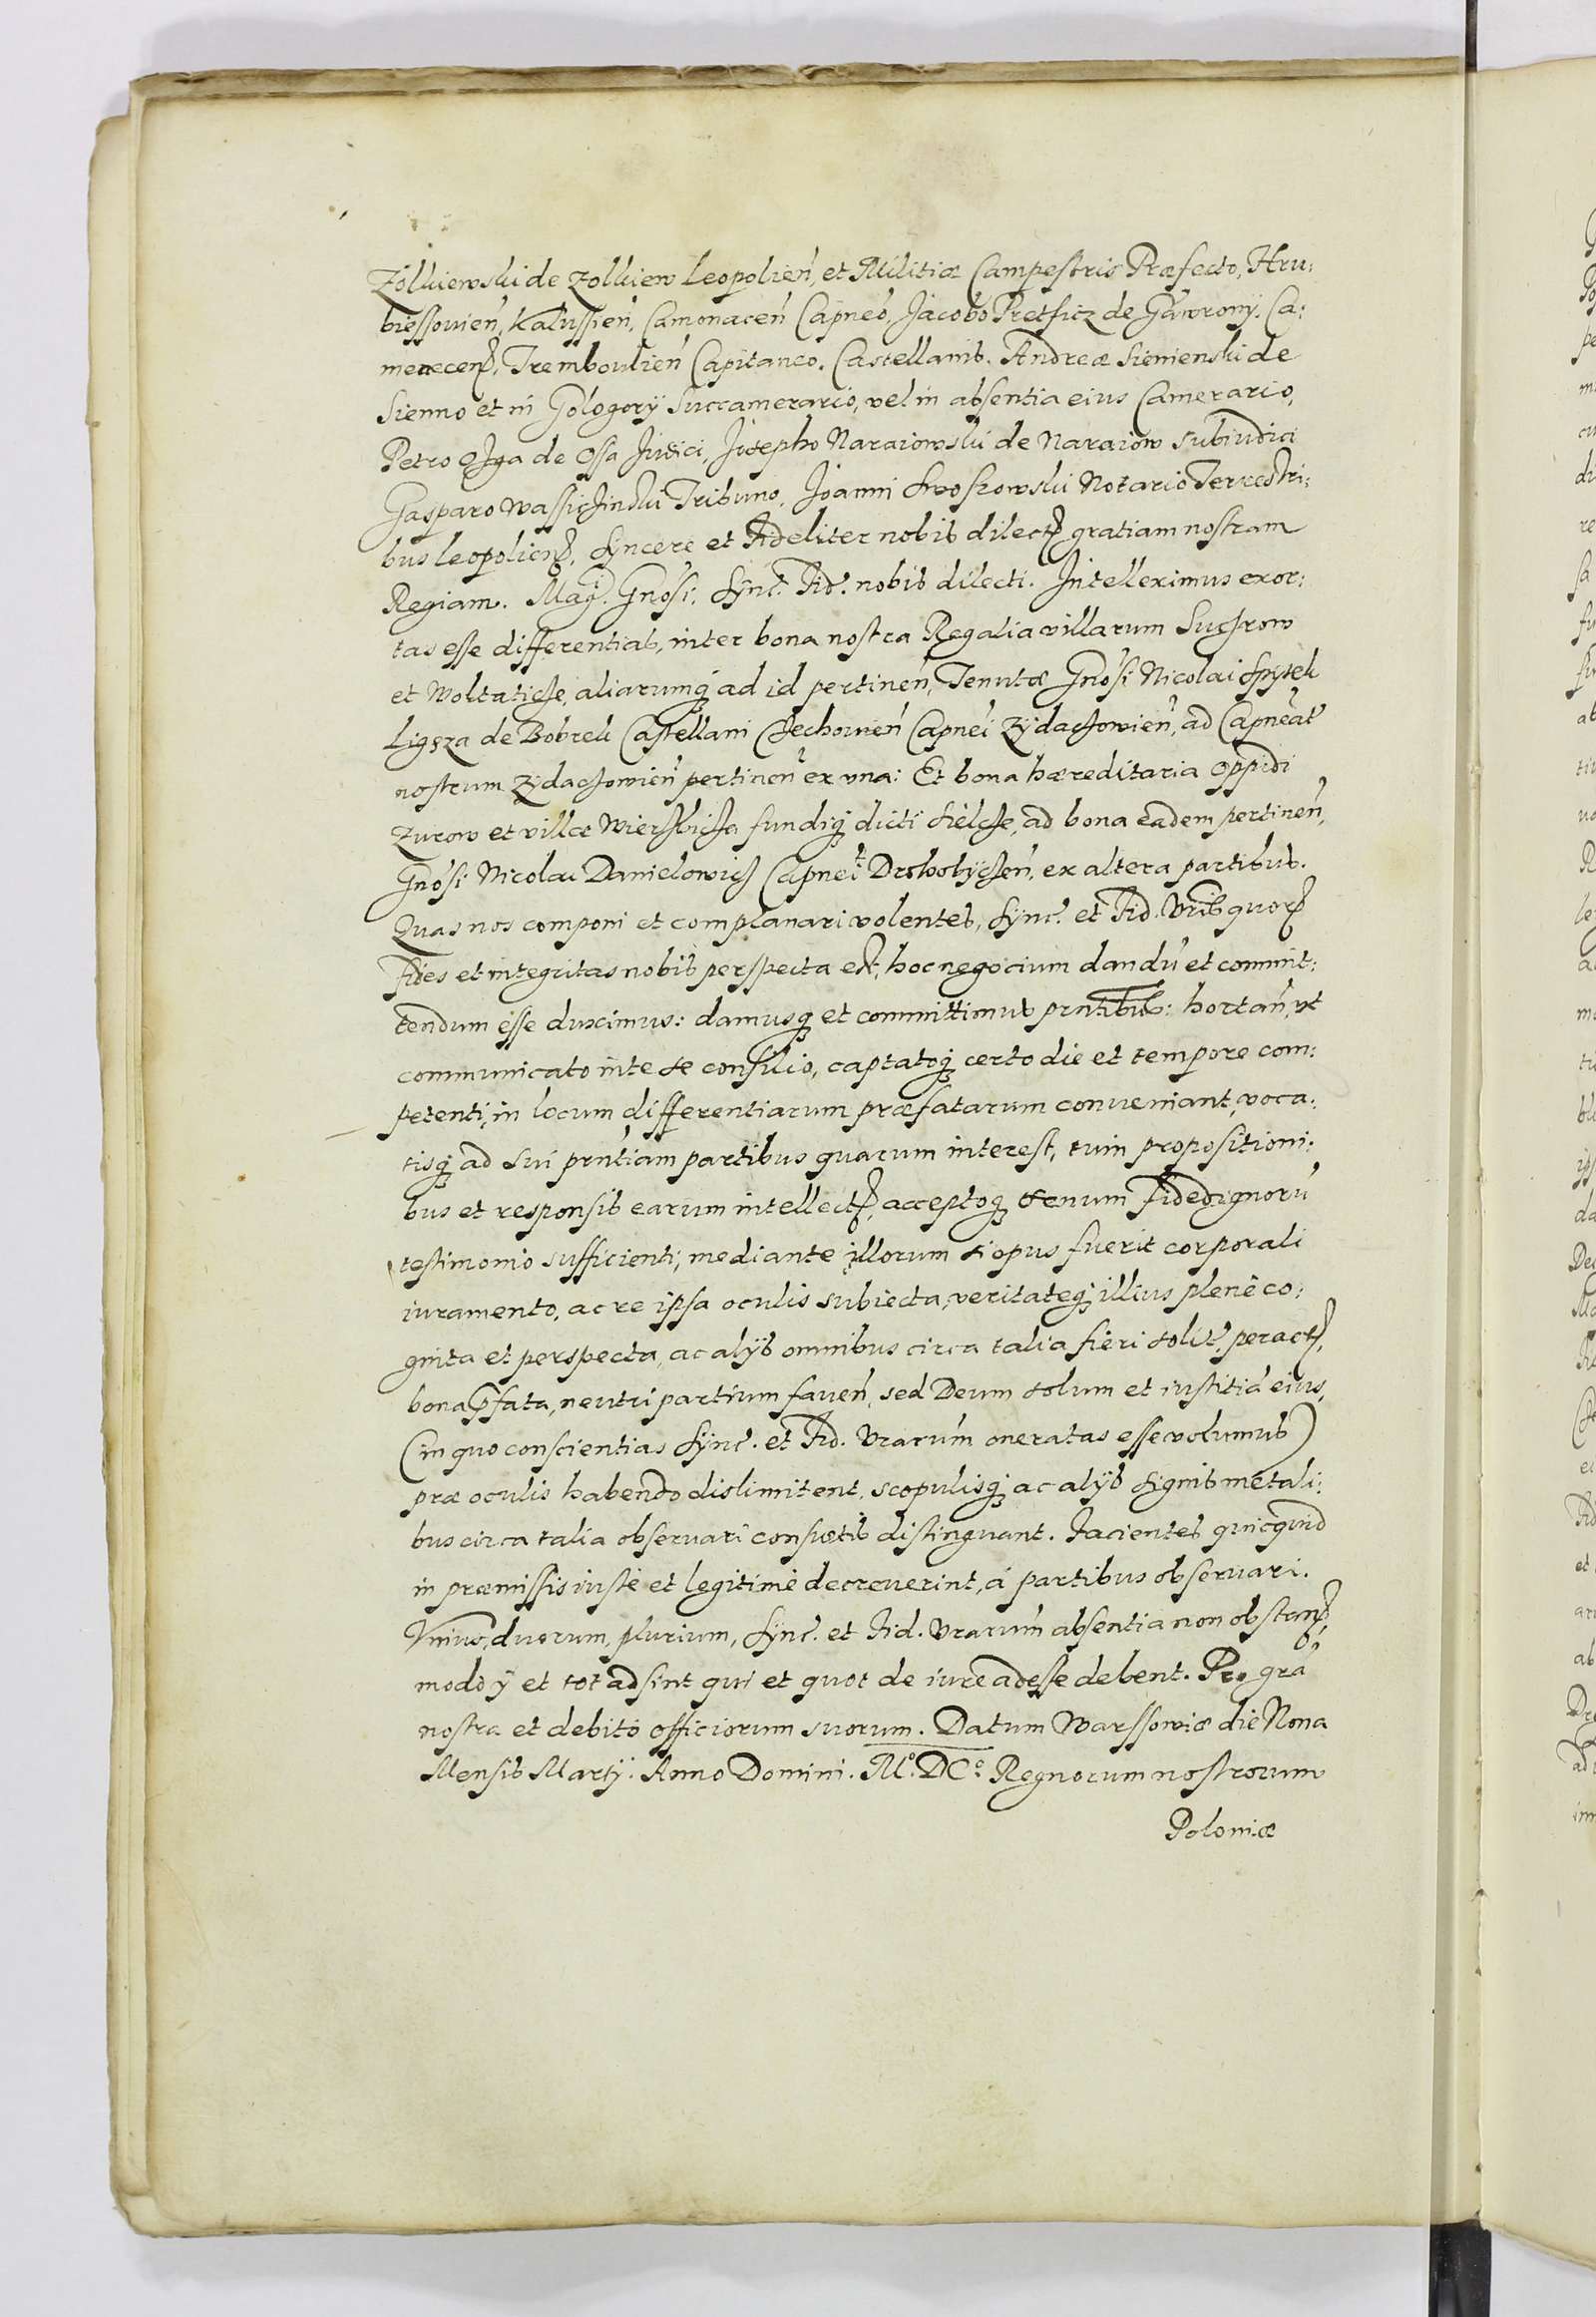 Zolkiewski de Zolkiew Leopolień, et Militiæ Campestris Præfecto, Hru:
biessouień, Kalussień, Camonaceń Capneo, Jacobo Pretficz de Gawrony. Ca:
menecen, Tremboulień Capitaneo. Castellanis. Andreæ Sienienski de
Sienno et in Gologory Succamerario, vel in absentia eius Camerario,
Petro Ozga de Ossa Judici, Josepho Naraiowski de Naraiow Subiudici
Gasparo Wassiczinski Tribuno, Joanni Swoszowski Notario Terrestri:
bus Leopolien. Syncere et Fideliter nobis dilectis gratiam nostram
Regiam. Mag. Gnosi. Sync. Fid. nobis dilecti. Intelleximus exor:
tas esse differentias, inter bona nostra Regalia villarum Suchrow
et Woltaticze, aliarumq ad id pertineń, Tenutæ Gnosi Nicolai Spytek
Ligęza de Bobrek Castellani Czechouień Capnei Zydaczowień, ad Capneat
nostrum Zydaczowień pertineń ex vna: Et bona hæreditaria Oppidi
Zurow et villæ Wierzbicza fundiq dicti Sielcze, ad bona eadem pertineń,
Gnosi Nicolai Danielowicz Capnei Drohobyczeń, ex altera partibus.
Quas nos componi et complanari volentes, Sync. et Fid. Vris quor
fides et integritas nobis perspecta est, hoc negocium dandū et commit:
tendum esse duximus: damusq et committimus pntibus: hortań, vt
communicato inte se consilio, captatoq certo die et tempore com:
petenti, in locum differentiarum præfatarum conueniant, voca:
tisq ad sui pntiam partibus quarum interest, tum propositioni:
bus et responsis earum intellect, acceptoq senum fidedignorū
testimonio sufficienti, mediante illorum si opus fuerit corporali
iuramento, ac re ipsa oculis subiecta, veritateq illius plene co:
gnita et perspecta, ac alijs omnibus circa talia fieri solit, peract,
bona pfata, neutri partium faueń, sed Deum solum et iustitiā eius,
(in quo conscientias Sync. et Fid. Vrarum oneratas esse volumus)
præ oculis habendo dislimitent, scopulisq ac alijs signis metali:
bus circa talia obseruari consuetis distinguant. Facientes quicquid
in præmissis iuste et legitime decreuerint, á partibus obseruari.
Vnius, duorum, plurium, Sync. et Fid. Vrarum absentia non obstan,
modo ij et tot adsint qui et quot de iure adesse debent. Pro grā
nostra et debito officiorum suorum. Datum Warssowiæ die Nona
Mensis Martij. Anno Domini. Mº. DCº. Regnorum nostrorum
Poloniæ